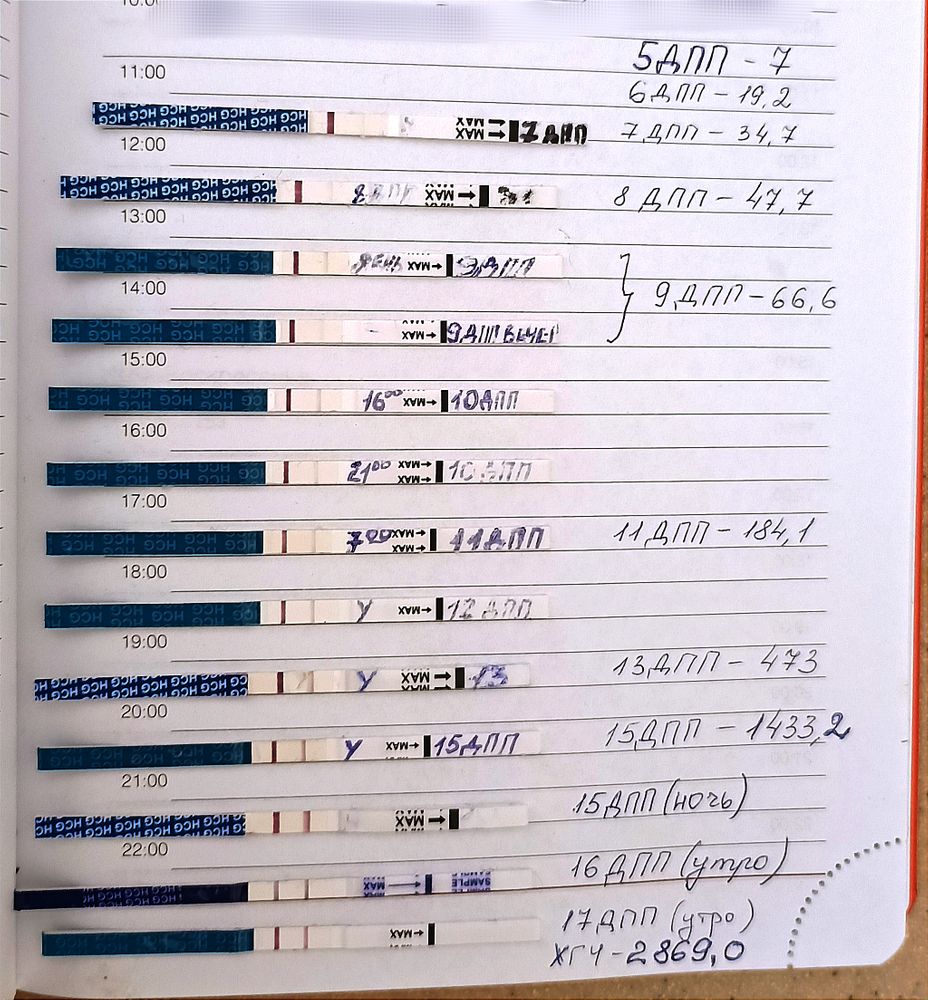 5ДПП - 7
11:00
6ДПП - 19,2
HCG HCG HCG HCG HCG HCG MAX 7 ДПП
7 ДПП - 34,7
12:00
HCG HCG HCG HCG HCG HCG 8 ДПП MAX
8 ДПП - 47,7
13:00
HCG HCG HCG HCG день MAX 9ДПП
14:00
9ДПП - 66,6
HCG HCG HCG HCG MAX 9ДПП ВЕЧЕР
15:00
HCG HCG HCG HCG 16⁰⁰ MAX 10ДПП
16:00
HCG HCG HCG HCG 21⁰⁰ MAX MAX 10 ДПП
17:00
HCG HCG HCG HCG 7⁰⁰ MAX MAX 11ДПП
11ДПП - 184,1
18:00
HCG HCG HCG HCG У MAX 12 ДПП
19:00
13ДПП - 473
HCG HCG HCG HCG HCG HCG У MAX MAX 13
20:00
15ДПП - 1433,2
HCG HCG HCG HCG У MAX 15ДПП
21:00
15ДПП (ночь)
HCG HCG HCG HCG HCG HCG MAX
22:00
16 ДПП (утро)
HCG HCG HCG MAX SAMPLE
17ДПП (утро)
HCG HCG HCG HCG MAX
ХГЧ - 2869,0